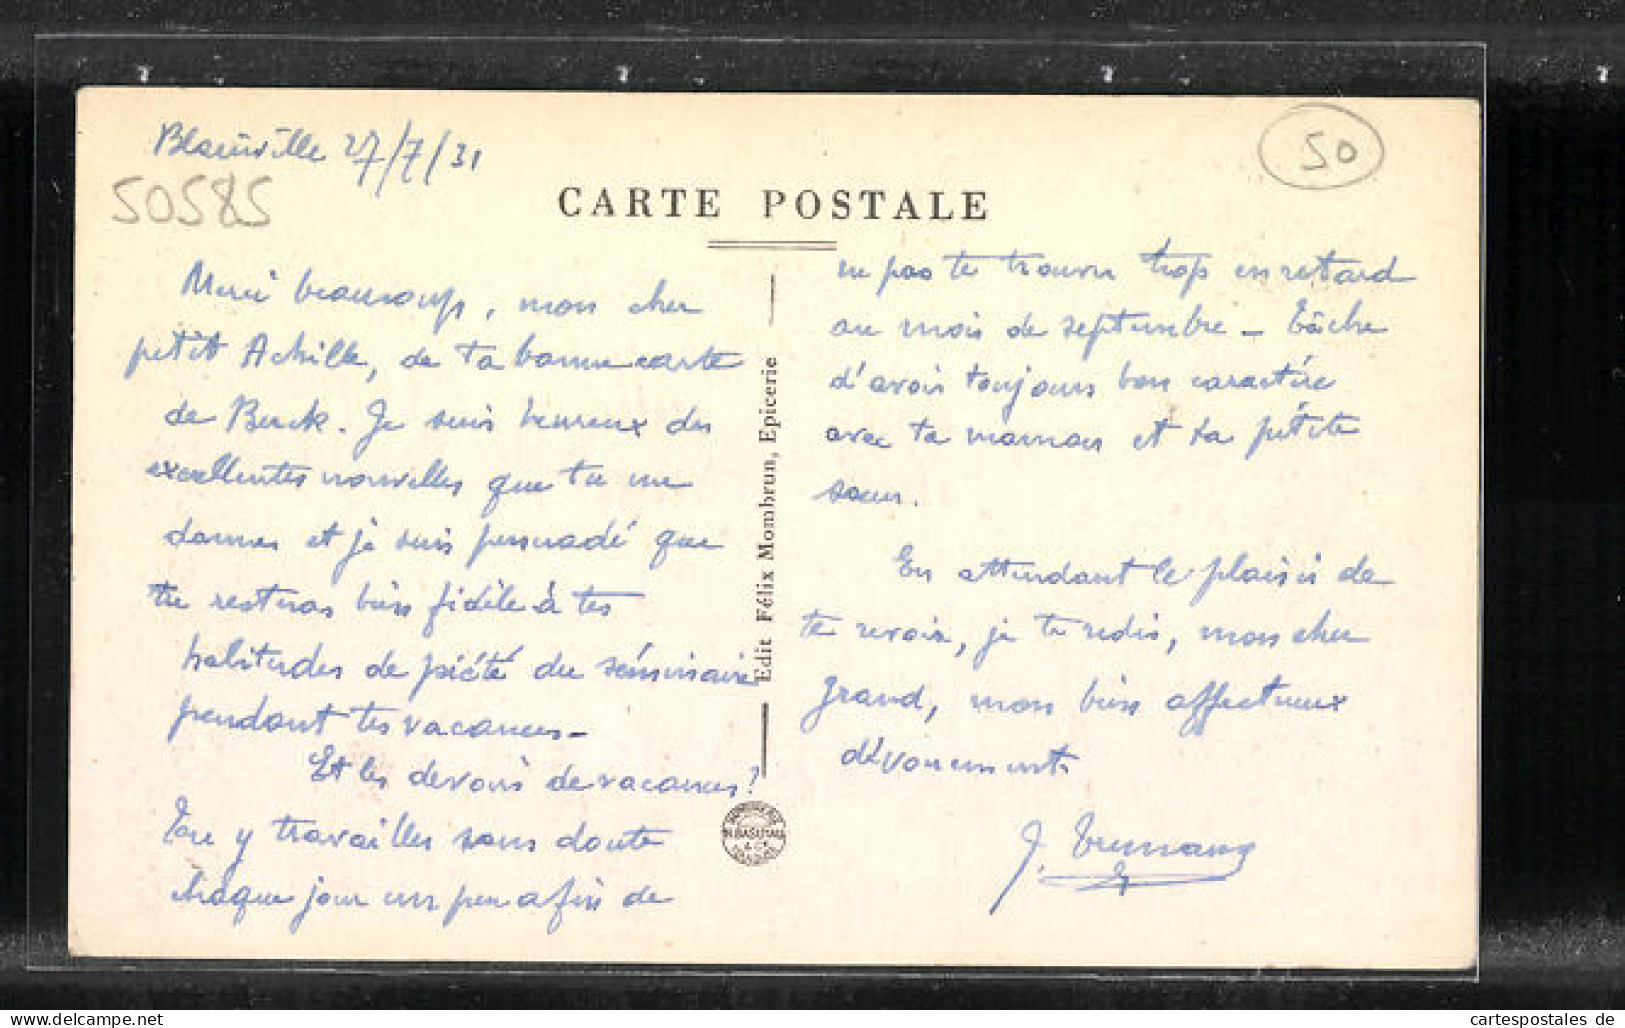 Blainville 27/7/31
50585
50
CARTE POSTALE
Merci beaucoup, mon cher
petit Achille, de ta bonne carte
de Berck. Je suis heureux des
excellentes nouvelles que tu me
donnes et je suis persuadé que
tu resteras bien fidèle à tes
habitudes de piété du séminaire
pendant tes vacances -
Et les devoirs de vacances ?
Tu y travailles sans doute
chaque jour un peu afin de
Edit Félix Mombrun, Epicerie
ne pas te trouver trop en retard
au mois de septembre - Tâche
d'avoir toujours bon caractère
avec ta maman et ta petite
sœur.
En attendant le plaisir de
te revoir, je te redis, mon cher
grand, mon bien affectueux
dévouement
J.
cartespostales de
www.delcampe.net